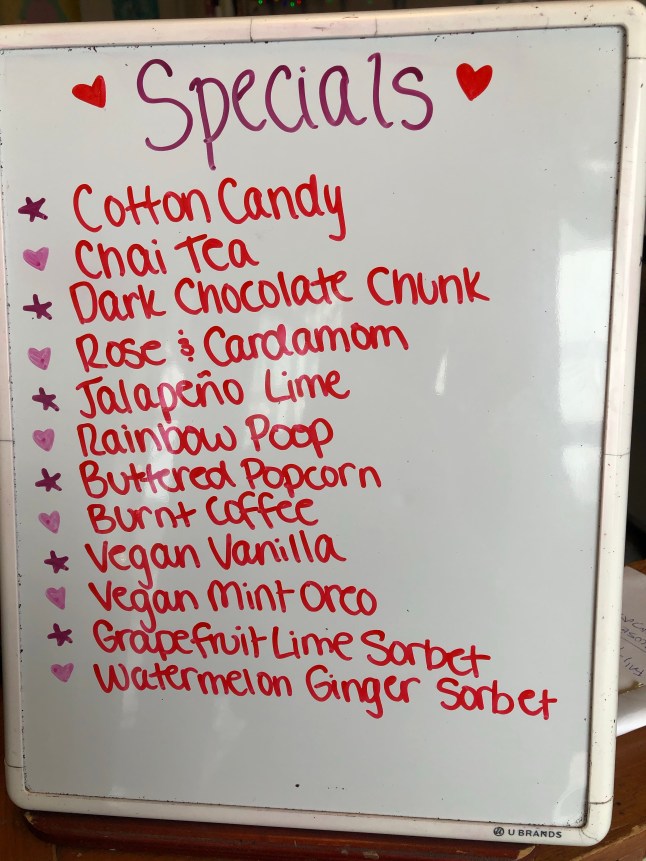 Specials
Cotton Candy
Chai Tea
Dark Chocolate Chunk
Rose & Cardamom
Jalapeño Lime
Rainbow Poop
Buttered Popcorn
Burnt Coffee
Vegan Vanilla
Vegan Mint Oreo
Grapefruit Lime Sorbet
Watermelon Ginger Sorbet
U BRANDS